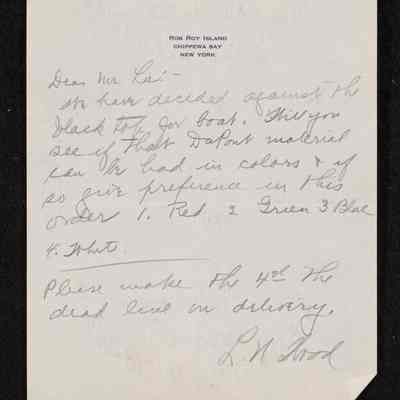 ROB ROY ISLAND
CHIPPEWA BAY
NEW YORK
Dear Mr.
We have decided against the
black top for boat. Will you
see if that DuPont material
can be had in colors & if
so give preference in this
order 1. Red 2 Green 3 Blue
4. White
Please make the 4th the
dead line on delivery.
L. N. Wood